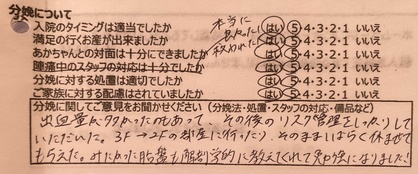 分娩について
入院のタイミングは適当でしたか はい 5・4・3・2・1 いいえ
満足の行くお産が出来ましたか 本当に はい 5・4・3・2・1 いいえ
あかちゃんとの対面は十分にできましたか はい 5・4・3・2・1 いいえ
陣痛中のスタッフの対応は十分でしたか はい 5・4・3・2・1 いいえ
分娩に対する処置は適切でしたか はい 5・4・3・2・1 いいえ
ご家族に対する配慮はされていましたか はい 5・4・3・2・1 いいえ
分娩に関してご意見をお聞かせください（分娩法・処置・スタッフの対応・備品など）
出血量が多かったのもあって、その後のリスク管理をしっかりして
いただいた。3F→2Fの部屋に行ったり、そのまましばらく休ませて
もらえた。みたかった胎盤も解剖学的に教えてくれて勉強になりました！